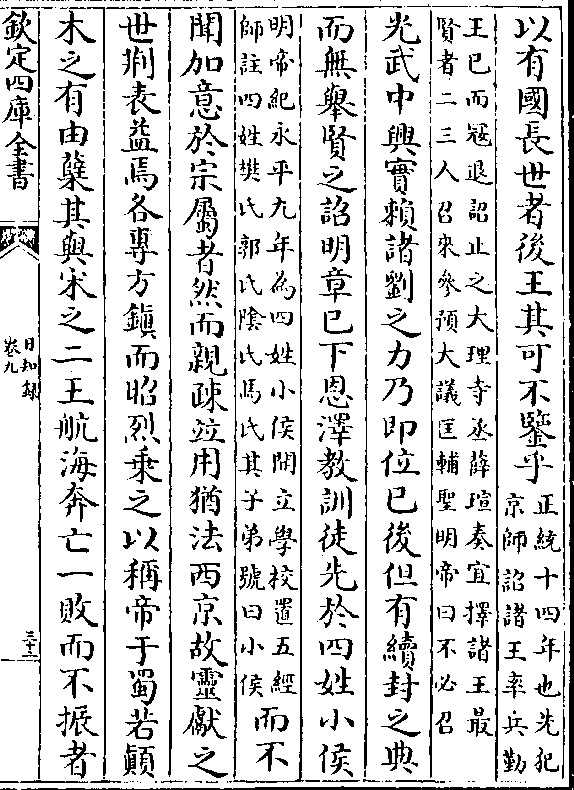 以有國長世者後王其可不鑒乎正統十四年也先犯
京師詔諸王率兵勤
王已而冦退詔止之大理寺丞薛瑄奏宜擇諸王最
賢者二三人召來參預大議匡輔聖明帝曰不必召
光武中興實賴諸劉之力乃即位已後但有續封之典
而無舉賢之詔明章已下恩澤教訓徒先於四姓小侯
明帝紀永平九年為四姓小侯開立學校置五經
師註四姓樊氏郭氏陰氏馬氏其子弟號曰小侯而不
聞加意於宗屬者然而親疎竝用猶法西京故靈獻之
世荆表益焉各專方鎮而昭烈乗之以稱帝于蜀若顛
木之有由蘖其與宋之二王航海奔亡一敗而不振者
欽定四庫全書
日知録
卷九
三十二